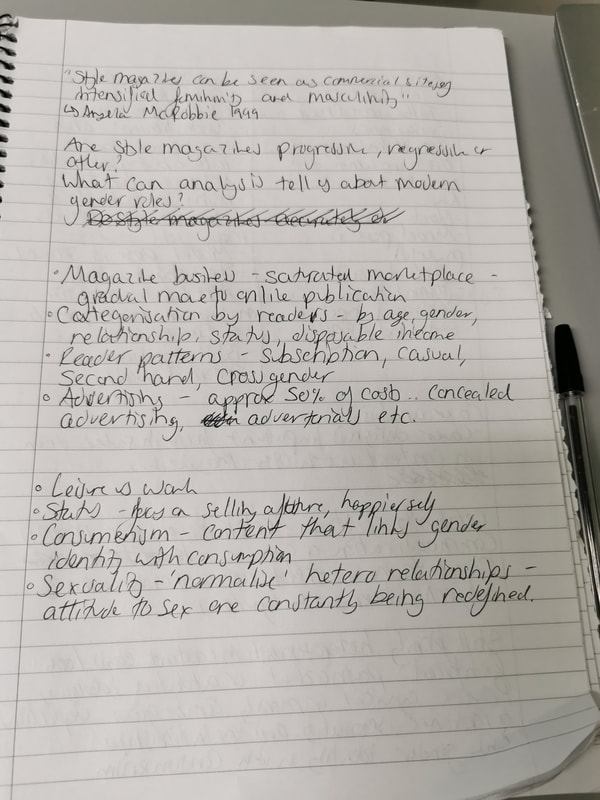 "Style magazines can be seen as commercial sites of
intensified femininity and masculinity"
↳ Angela McRobbie 1999
Are style magazines progressive, regressive or
other?
What can analysis tell us about modern
gender roles?
Do style magazines accurately
• Magazine business - saturated marketplace -
gradual move to online publication
• Categorisation by readers - by age, gender,
relationship, status, disposable income
• Reader patterns - subscription, casual,
second hand, cross gender
• Advertising - approx 50% of cost .. concealed
advertising, advertorials etc.
• Leisure vs work
• Status - focus on selling a future, happier self
• Consumerism - content that links gender
identity with consumption
• Sexuality - 'normalise' hetero relationships -
attitude to sex are constantly being redefined.